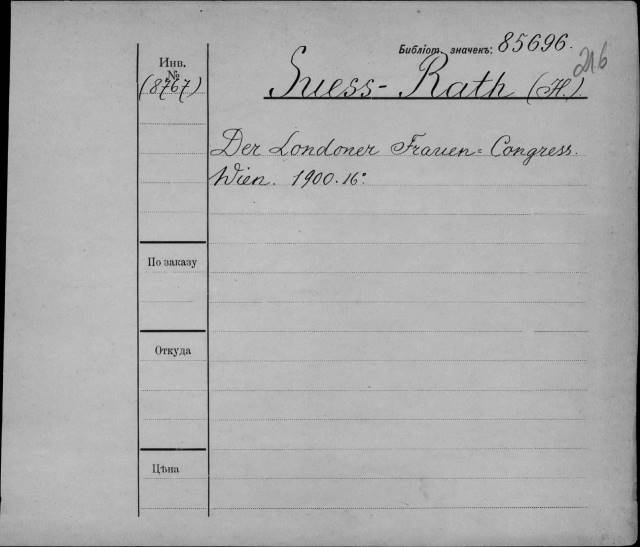 Библіот. значекъ: 85696.
216
Инв.
№
(8767)
Suess-Rath (H)
Der Londoner Frauen-Congress.
Wien. 1900. 16°
По заказу
Откуда
Цѣна